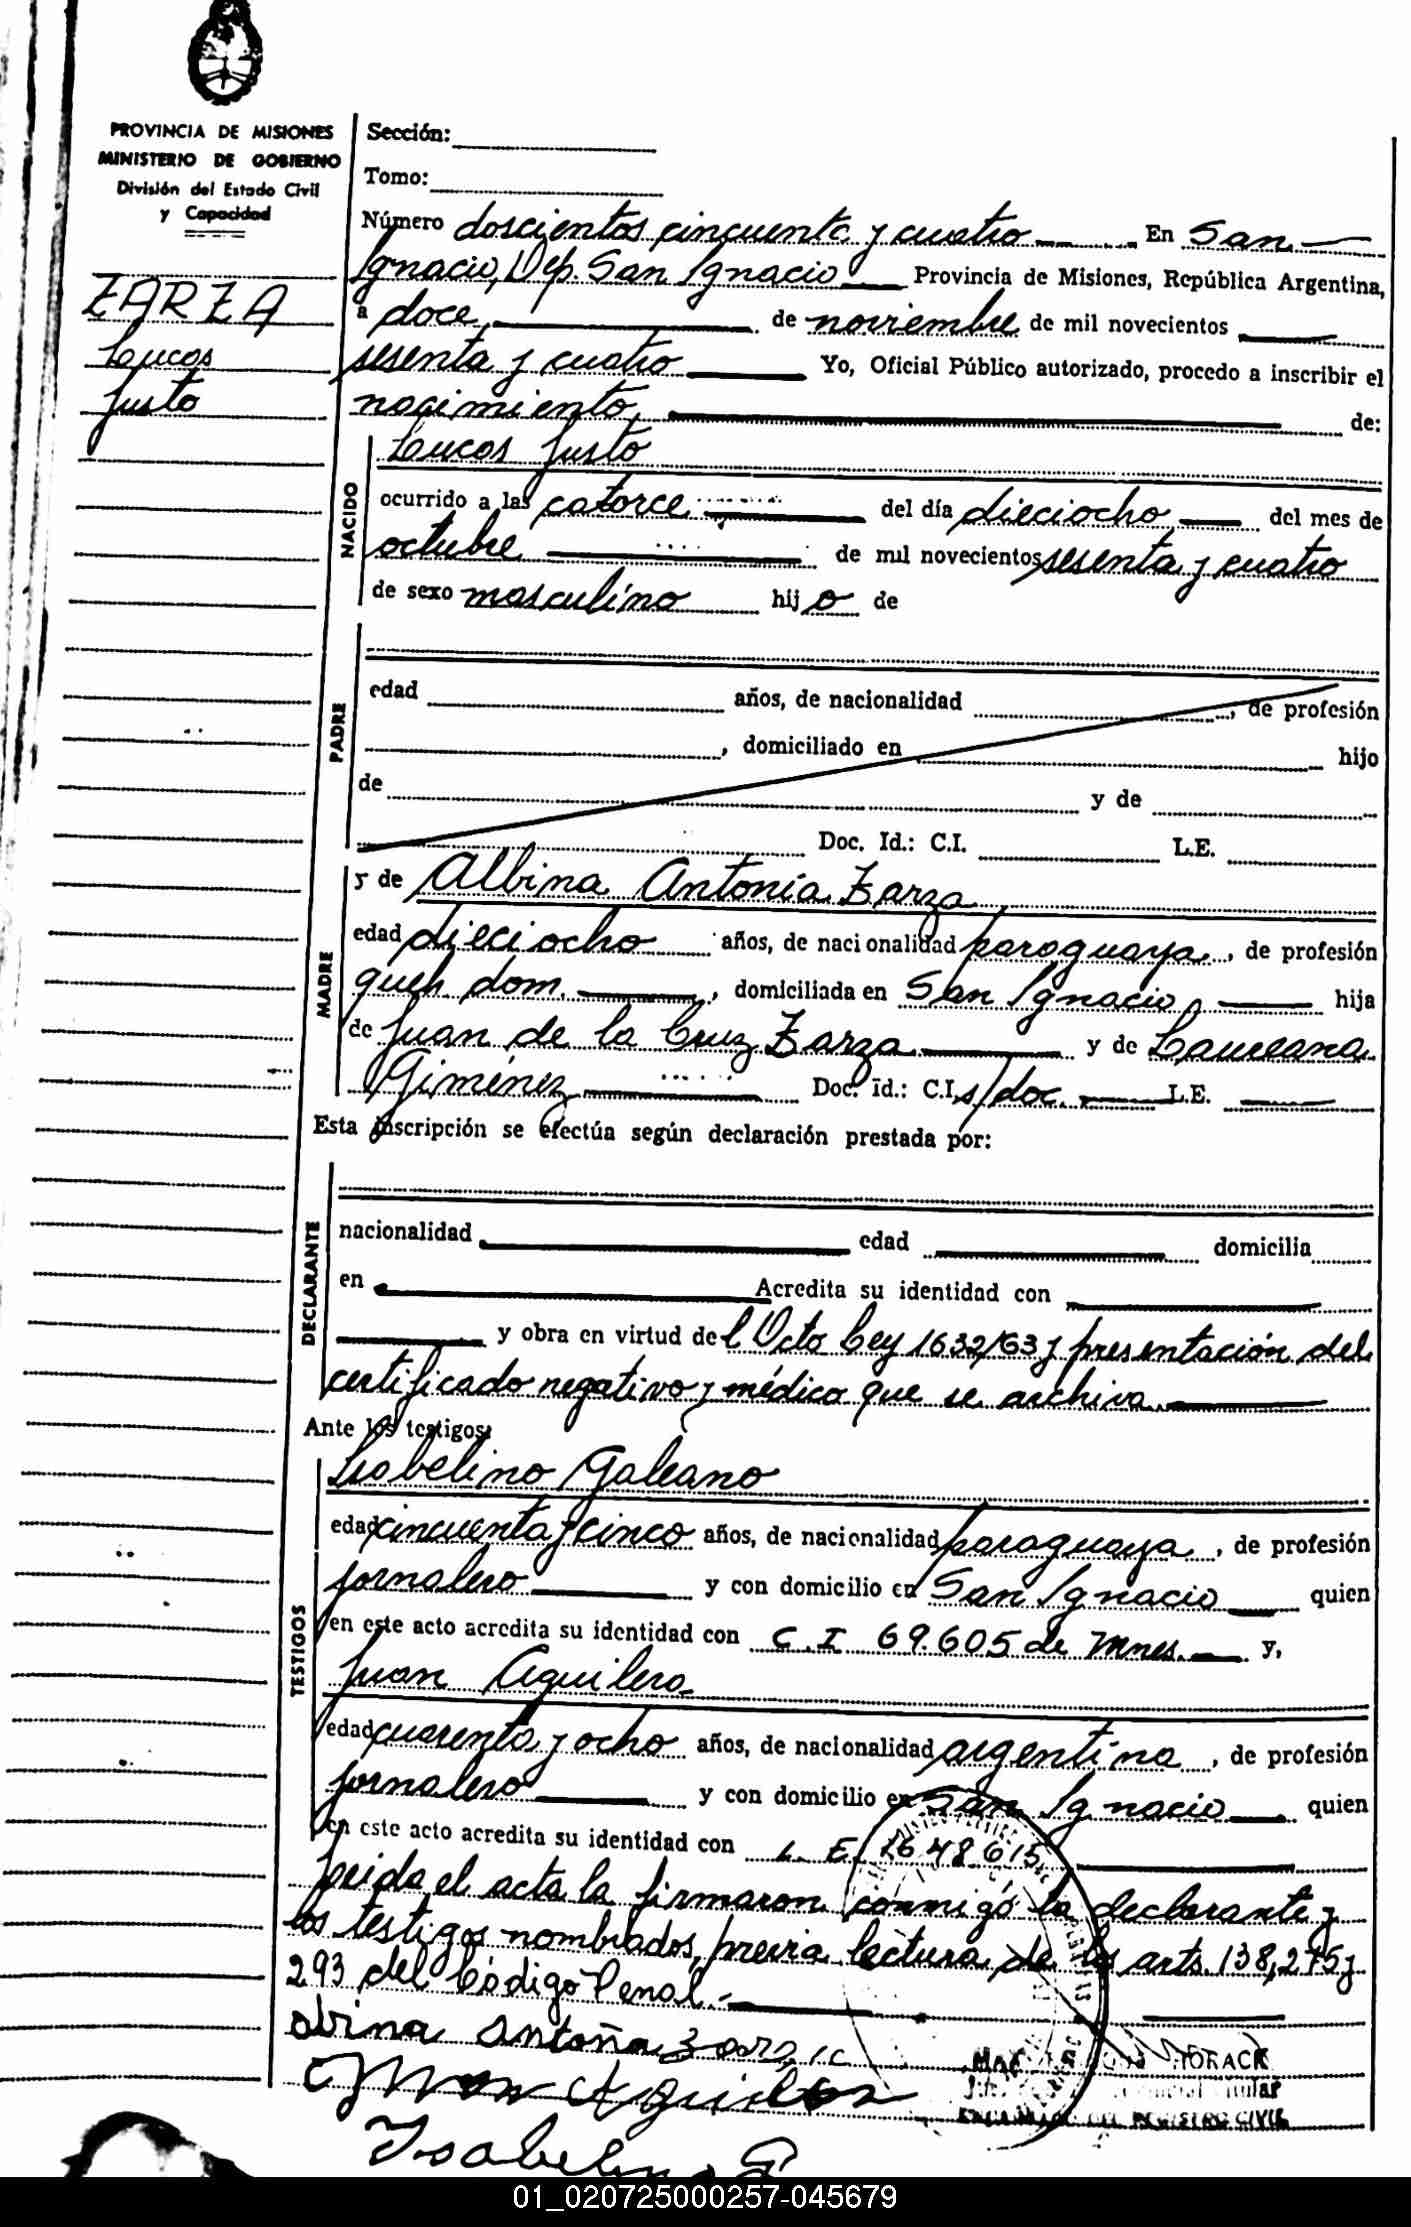 PROVINCIA DE MISIONES
MINISTERIO DE GOBIERNO
División del Estado Civil
y Capacidad
ZARZA
Lucas
Justo
Sección:
Tomo:
Número doscientos cincuenta y cuatro En San
Ignacio, Dep. San Ignacio Provincia de Misiones, República Argentina,
a doce de noviembre de mil novecientos
sesenta y cuatro Yo, Oficial Público autorizado, procedo a inscribir el
nacimiento de:
Lucas Justo
NACIDO
ocurrido a las catorce del día dieciocho del mes de
octubre de mil novecientos sesenta y cuatro
de sexo masculino hijo de
PADRE
edad años, de nacionalidad , de profesión
, domiciliado en hijo
de y de
Doc. Id.: C.I. L.E.
MADRE
y de Albina Antonia Zarza
edad dieciocho años, de nacionalidad paraguaya, de profesión
queh. dom. , domiciliada en San Ignacio, hija
de Juan de la Cruz Zarza y de Laureana
Giménez Doc. Id.: C.I. s/doc. L.E.
Esta inscripción se efectúa según declaración prestada por:
DECLARANTE
nacionalidad edad domicilia
en Acredita su identidad con
y obra en virtud del Dcto Ley 1632/63 y presentación del
certificado negativo y médico que se archiva.
Ante los testigos:
TESTIGOS
Isabelino Galeano
edad cincuenta y cinco años, de nacionalidad paraguaya, de profesión
jornalero y con domicilio en San Ignacio quien
en este acto acredita su identidad con C.I 69.605 de Mnes. y,
Juan Aguilera
edad cuarenta y ocho años, de nacionalidad argentina, de profesión
jornalero y con domicilio en San Ignacio quien
en este acto acredita su identidad con L.E. 1648615
Leída el acta la firmaron conmigo la declarante y
los testigos nombrados, previa lectura de los arts. 138, 275 y
293 del Código Penal.-
albina antoña
Juan Aguilera
Isabelino G
REGISTRO CIVIL
01_020725000257-045679